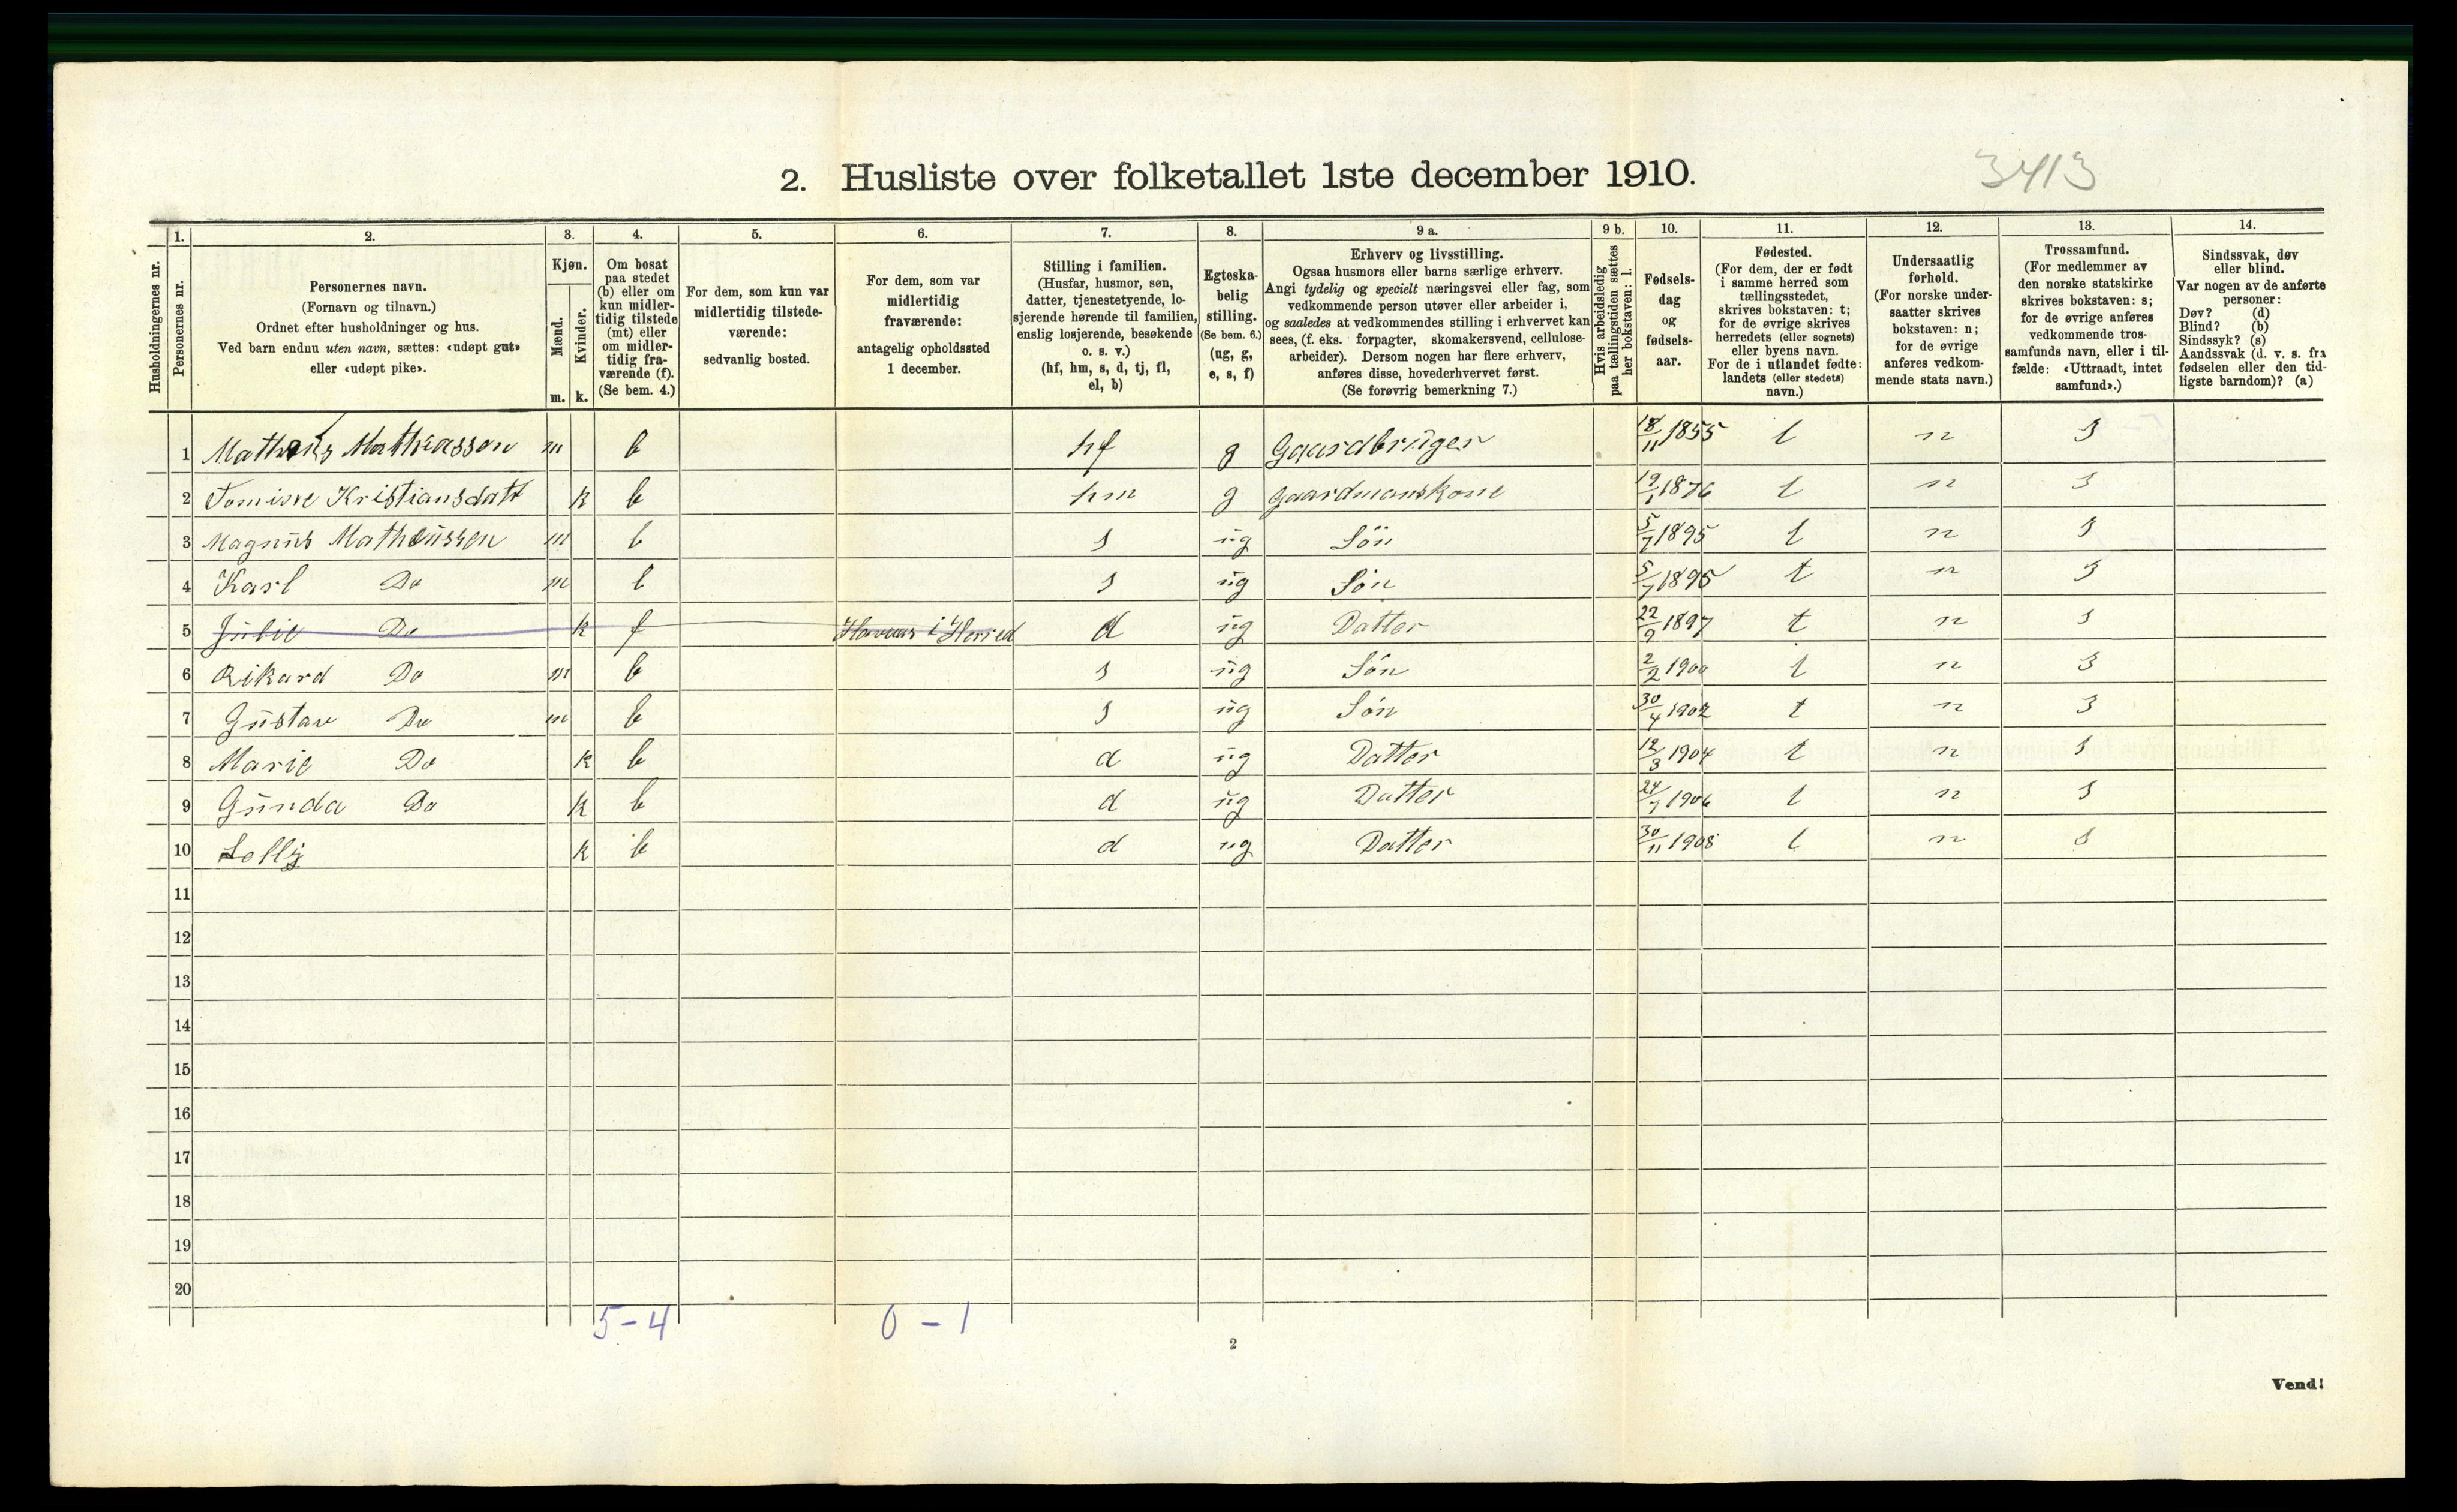 2. Husliste over folketallet 1ste december 1910.
3413
Husholdningernes nr.
1. Personernes nr.
2. Personernes navn. (Fornavn og tilnavn.) Ordnet efter husholdninger og hus. Ved barn endnu uten navn, sættes: «udøpt gut» eller «udøpt pike».
3. Kjøn. Mænd. m. Kvinder. k.
4. Om bosat paa stedet (b) eller om kun midlertidig tilstede (mt) eller om midlertidig fraværende (f). (Se bem. 4.)
5. For dem, som kun var midlertidig tilstedeværende: sedvanlig bosted.
6. For dem, som var midlertidig fraværende: antagelig opholdssted 1 december.
7. Stilling i familien. (Husfar, husmor, søn, datter, tjenestetyende, losjerende hørende til familien, enslig losjerende, besøkende o. s. v.) (hf, hm, s, d, tj, fl, el, b)
8. Egteskabelig stilling. (Se bem. 6.) (ug, g, e, s, f)
9 a. Erhverv og livsstilling. Ogsaa husmors eller barns særlige erhverv. Angi tydelig og specielt næringsvei eller fag, som vedkommende person utøver eller arbeider i, og saaledes at vedkommendes stilling i erhvervet kan sees, (f. eks. forpagter, skomakersvend, cellulosearbeider). Dersom nogen har flere erhverv, anføres disse, hovederhvervet først. (Se forøvrig bemerkning 7.)
9 b. Hvis arbeidsledig paa tællingstiden sættes her bokstaven: l.
10. Fødselsdag og fødselsaar.
11. Fødested. (For dem, der er født i samme herred som tællingsstedet, skrives bokstaven: t; for de øvrige skrives herredets (eller sognets) eller byens navn. For de i utlandet fødte: landets (eller stedets) navn.)
12. Undersaatlig forhold. (For norske undersaatter skrives bokstaven: n; for de øvrige anføres vedkommende stats navn.)
13. Trossamfund. (For medlemmer av den norske statskirke skrives bokstaven: s; for de øvrige anføres vedkommende trossamfunds navn, eller i tilfælde: «Uttraadt, intet samfund».)
14. Sindssvak, døv eller blind. Var nogen av de anførte personer: Døv? (d) Blind? (b) Sindssyk? (s) Aandssvak (d. v. s. fra fødselen eller den tidligste barndom)? (a)
1 Mathiasson m b hf g Gaardbruger 18/11 1855 t n s
2 Kristiansdatt k b hm g Gaardmanskone 19/1 1876 t n s
3 Magnus Matheussen m b s ug Søn 5/7 1895 t n s
4 Karl Do m b s ug Søn 5/7 1895 t n s
5 Julie Do k f i Herred d ug Datter 22/9 1897 t n s
6 Rikard Do m b s ug Søn 2/2 1900 t n s
7 Gustav Do m b s ug Søn 30/4 1902 t n s
8 Marie Do k b d ug Datter 12/3 1904 t n s
9 Gunda Do k b d ug Datter 24/7 1906 t n s
10 Lolly k b d ug Datter 30/11 1908 t n s
11
12
13
14
15
16
17
18
19
20
5-4
0-1
2
Vend!